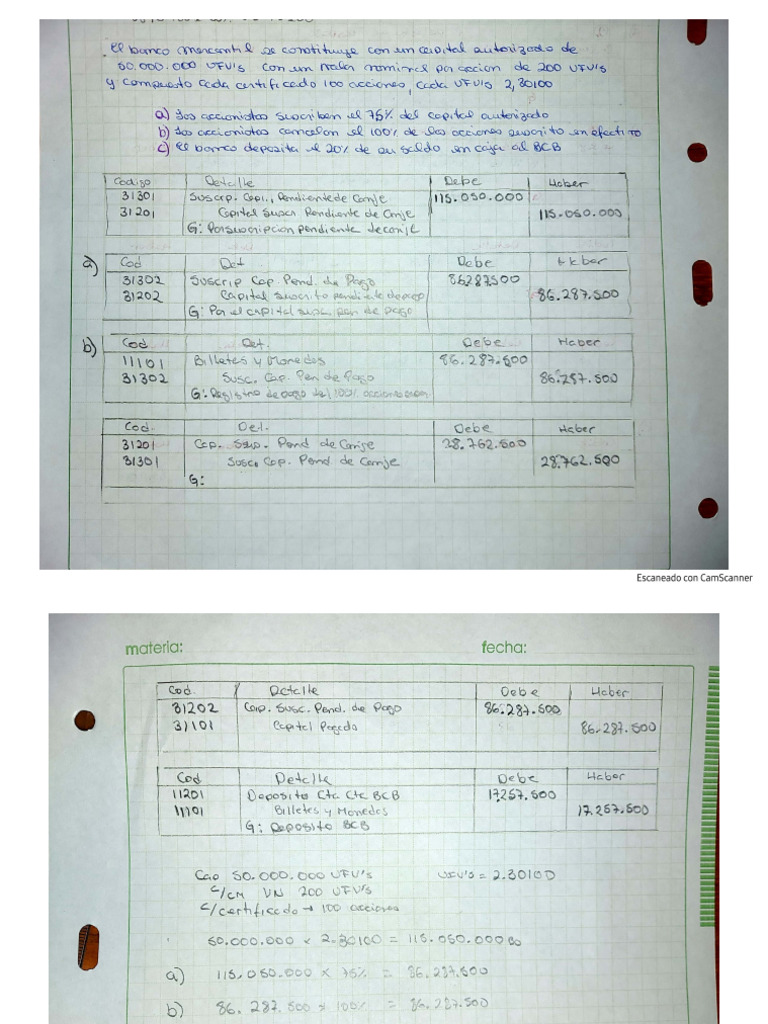 El banco mercantil se constituye con un capital autorizado de
50.000.000 UFV's con un valor nominal por accion de 200 UFV's
y compuesto cada certificado 100 acciones, cada UFV's 2,30100
a) Los accionistas suscriben el 75% del capital autorizado
b) Los accionistas cancelan el 100% de las acciones suscrito en efectivo
c) El banco deposita el 20% de su saldo en caja al BCB
Codigo Detalle Debe Haber
31301 Suscrp. Capi., Pendiente de Canje 115.050.000
31201 Capital Suscr Pendiente de Canje 115.050.000
G: Por suscripcion pendiente de canje
a) Cod Det Debe Haber
31302 Suscrip Cap. Pend. de Pago 86287500
31202 Capital suscrito pendiente de pago 86.287.500
G: Por el capital susc. pen de pago
b) Cod Det. Debe Haber
11101 Billetes y Monedas 86.287.500
31302 Susc. Cap. Pen de Pago 86.287.500
G: Registro de pago del 100% acciones
Cod. Det. Debe Haber
31201 Cap. Sus. Pend de Canje 28.762.500
31301 Susc. Cap. Pend. de Canje 28.762.500
G:
Escaneado con CamScanner
materia: fecha:
Cod. Detalle Debe Haber
31202 Cap. Susc. Pend. de Pago 86.287.500
31101 Capital Pagado 86.287.500
Cod Detalle Debe Haber
11201 Deposito Cta Cte BCB 17.257.500
11101 Billetes y Monedas 17.257.500
G: Deposito BCB
Cao 50.000.000 UFV's UFV's = 2.30100
c/CM VN 200 UFV's
c/certificado → 100 acciones
50.000.000 x 2.30100 = 115.050.000
a) 115.050.000 x 75% = 86.287.500
b) 86.287.500 x 100% = 86.287.500